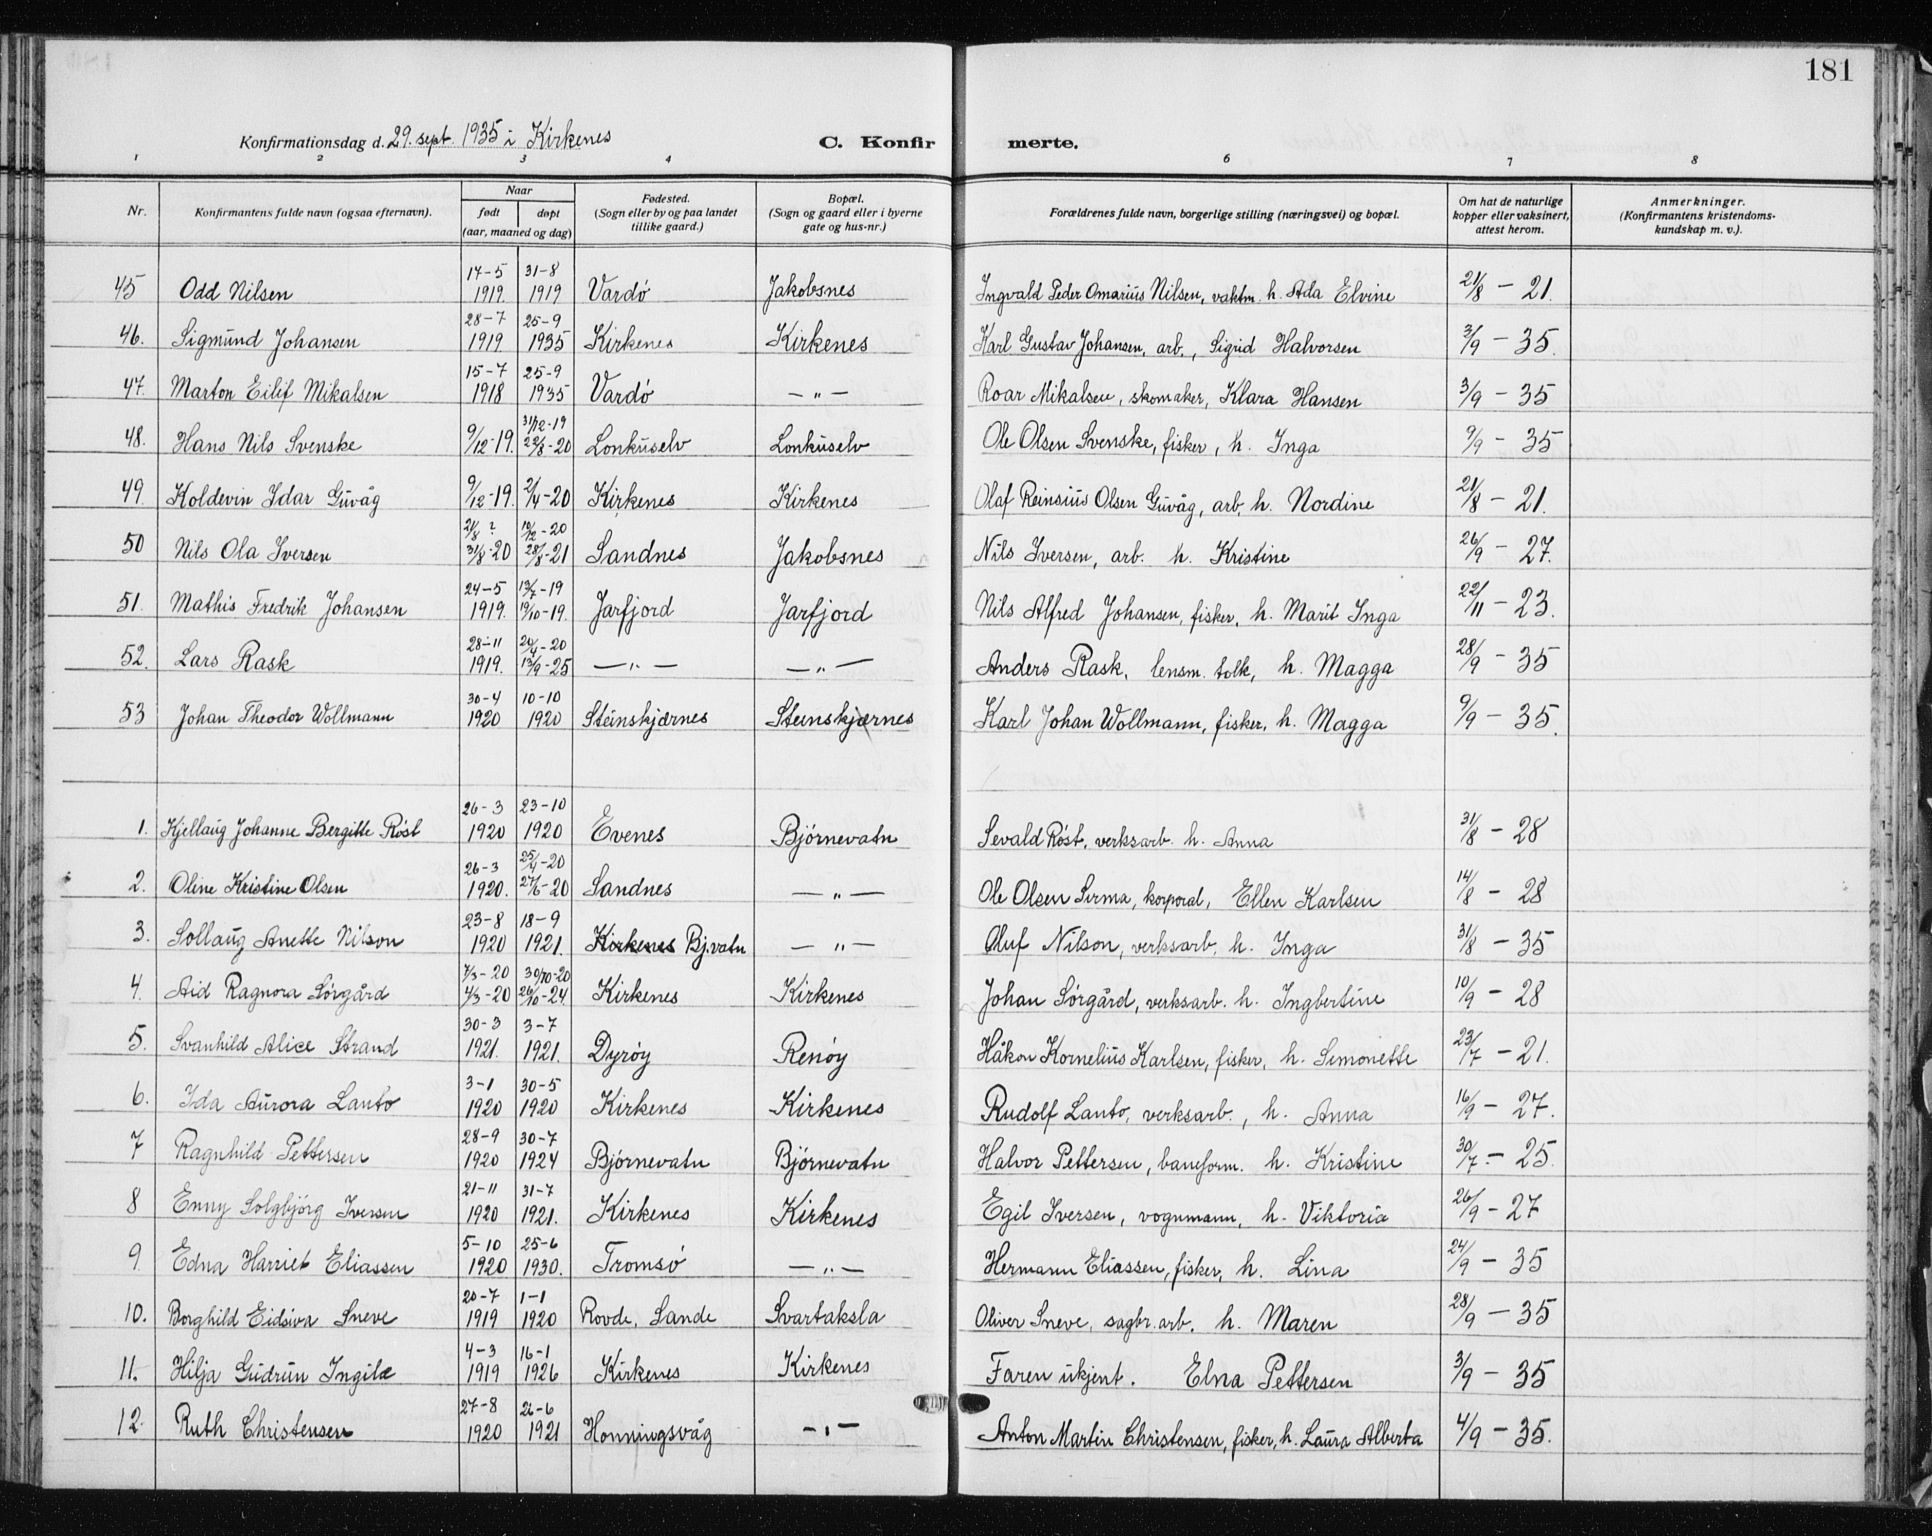 181
Konfirmationsdag d. 29. sept. 1935 i Kirkenes C. Konfirmerte.
1 2 3 4 6 7 8
Nr. Konfirmantens fulde navn (ogsaa efternavn). Naar født døpt (aar, maaned og dag) Fødested. (Sogn eller by og paa landet tillike gaard.) Bopæl. (Sogn og gaard eller i byerne gate og hus-nr.) Forældrenes fulde navn, borgerlige stilling (næringsvei) og bopæl. Om hat de naturlige kopper eller vaksinert, attest herom. Anmerkninger. (Konfirmantens kristendoms-kundskap m. v.).
45 Odd Nilsen 17-5 1919. 31-8 1919 Vardö Jakobsnes Ingvald Peder Omarius Nilsen, vaktm. h. Ada Elvine 21/8 - 21.
46. Sigmund Johansen 28-7 1919 25-9 1935 Kirkenes Kirkenes Karl Gustav Johansen, arb., Sigrid Halvorsen 3/9 - 35.
47. Marton Eilif Mikalsen 15-7 1918 25-9 1935 Vardö — „ — Roar Mikalsen, skomaker, Klara Hansen 3/9 - 35
48. Hans Nils Svenske 9/12-19. 31/12-19 22/8-20 Lonkuselv Lonkuselv Ole Olsen Svenske, fisker, h. Inga 9/9 - 35
49. Koldevin Idar Guvåg 9/12-19. 2/4-20 Kirkenes Kirkenes Olaf Reinsius Olsen Guvåg, arb. h. Nordine 21/8 - 21.
50 Nils Ola Iversen 21/8 ? 31/8-20 19/12-20 28/8-21 Sandnes Jakobsnes Nils Iversen, arb. h. Kristine 26/9 - 27.
51. Mathis Fredrik Johansen 24-5 1919. 13/7-19 19/10-19. Jarfjord Jarfjord Nils Alfred Johansen, fisker, h. Marit Inga 22/11 - 23.
52. Lars Rask 28-11 1919. 20/4-20 13/9-25 — „ — — „ — Anders Rask, lensm. tolk, h. Magga 28/9 - 35
53 Johan Theodor Wollmann 30-4 1920 10-10 1920 Steinskjærnes Steinskjærnes Karl Johan Wollmann, fisker, h. Magga 9/9 - 35.
1. Kjellaug Johanne Bergitte Röst 26-3 1920 23-10 1920 Evenes Björnevatn Sevald Röst, verksarb. h. Anna 31/8 - 28
2. Oline Kristine Olsen 26-3 1920. 25/4-20 27/6-20 Sandnes — „ — Ole Olsen Sirma, korporal, Ellen Karlsen 14/8 - 28
3. Sollaug Anette Nilson 23-8 1920 18-9 1921. Kirkenes Bj.vatn — „ — Oluf Nilson, verksarb. h. Inga 31/8 - 35
4. Aid Ragnora Sörgård 7/3-20 4/3-20 30/10-20 26/10-24 Kirkenes Kirkenes Johan Sörgård, verksarb. h. Ingbertine 10/9 - 28
5. Svanhild Alice Strand 30-3 1921. 3-7 1921. Dyröy Renöy Håkon Kornelius Karlsen, fisker, h. Simonette 23/7 - 21.
6. Ida Aurora Lanto 3-1 1920 30-5 1920 Kirkenes Kirkenes Rudolf Lanto, verksarb., h. Anna 16/9 - 27.
7 Ragnhild Pettersen 28-9 1920 30-7 1924 Björnevatn Björnevatn Halvor Pettersen, baneform. h. Kristine 30/7 - 25.
8 Enny Solgbjörg Iversen 21-11 1920 31-7 1921. Kirkenes Kirkenes Egil Iversen, vognmann, h. Viktoria 26/9 - 27
9. Edna Harriet Eliassen 5-10 1920 25-6 1930. Tromsö — „ — Hermann Eliassen, fisker, h. Lina 24/9 - 35
10. Borghild Eidsiva Sneve 20-7 1919 1-1 1920 Rovde, Sande Svartaksla Oliver Sneve, sagbr. arb. h. Maren 28/9 - 35
11. Hilja Gudrun Ingilæ 4-3 1919 16-1 1926 Kirkenes Kirkenes Faren ukjent. Elna Pettersen 3/9 - 35
12. Ruth Christensen 27-8 1920 26-6 1921 Honningsvåg — „ — Anton Martin Christensen, fisker, h. Laura Alberta 4/9 - 35.